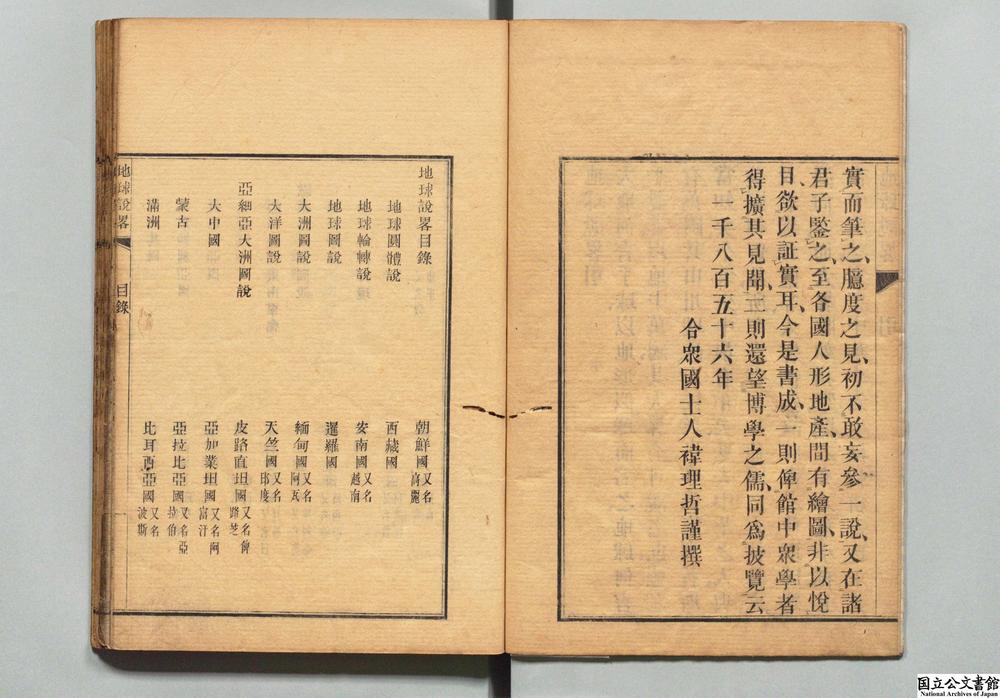 實而筆之、臆度之見、初不敢妄參一說、又在諸
君子鑒之、至各國人形地產、間有繪圖、非以悅
目、欲以証實耳、今是書成、一則俾館中衆學者
得擴其見聞、一則還望博學之儒、同爲披覽云
一千八百五十六年
合衆國士人禕理哲謹撰
地球說畧目錄
地球圓體說
地球輪轉說
地球圖說
大洲圖說
大洋圖說
亞細亞大洲圖說
大中國
蒙古
滿洲
朝鮮國又名高麗
西藏國
安南國又名越南
暹羅國
緬甸國又名阿瓦
天竺國又名印度
皮路直坦國又名俾路芝
亞加業坦國又名阿富汗
亞拉比亞國又名亞拉伯
比耳西亞國又名波斯
地球說畧
目錄
国立公文書館
National Archives of Japan